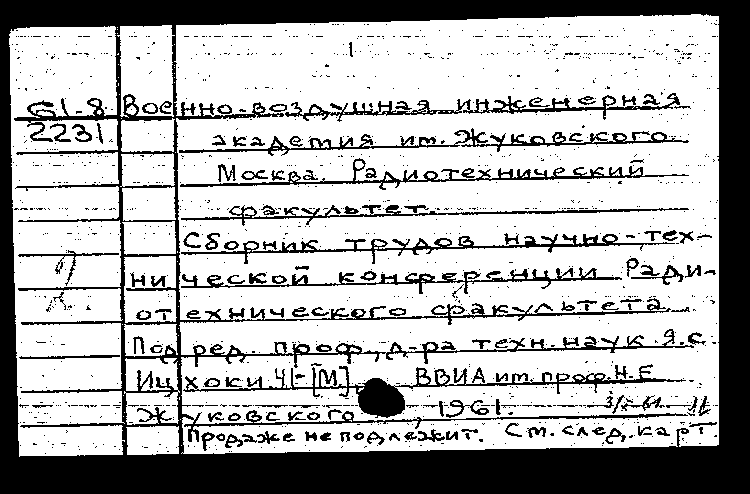 1
G1-8 Военно-воздушная инженерная
2231 академия им. Жуковского.
Москва. Радиотехнический
факультет.
Сборник трудов научно-тех-
нической конференции Ради-
отехнического факультета.
Под ред. проф., д-ра техн. наук Я.С.
Ицхоки. Ч1- [М], ВВИА им. проф. Н.Е
Жуковского, 1961.
Продаже не подлежит. См. след. карт.